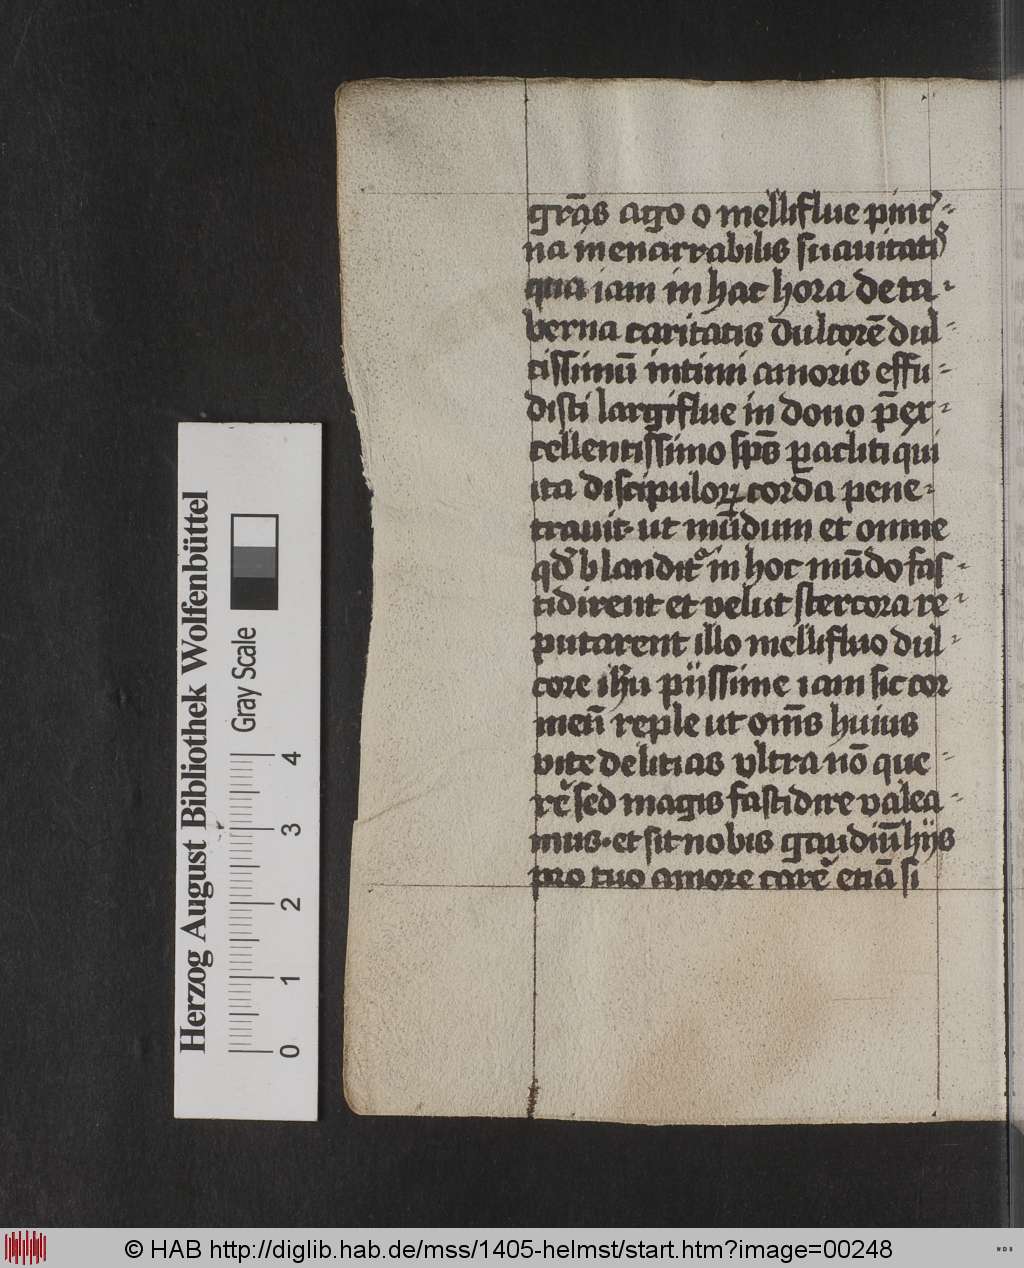 grãs ago o melliflue pinc᷑⸗
na inenarrabilis suauitatis
qua iam in hac hora de ta⸗
berna caritatis dulcorē dul⸗
cissimū intimi amoris effu⸗
disti largiflue in dono p̄ex⸗
cellentissimo sp̄s ꝑacliti qui
ita discipuloꝝ corda pene⸗
trauit· ut mūdum et omne
qd̄ blandit᷑ in hoc mūdo fas⸗
tidirent et velut stercora re⸗
putarent illo mellifluo dul⸗
core ihū piissime iam sic cor
meū reple ut om̄s huius
vite delitias vltra nō que⸗
re᷑ sed magis fastidire valea⸗
mus· et sit nobis gaudiū hijs
pro tuo amore care᷑ etiā si
Herzog August Bibliothek Wolfenbüttel
Gray Scale
0 1 2 3 4
© HAB http://diglib.hab.de/mss/1405-helmst/start.htm?image=00248